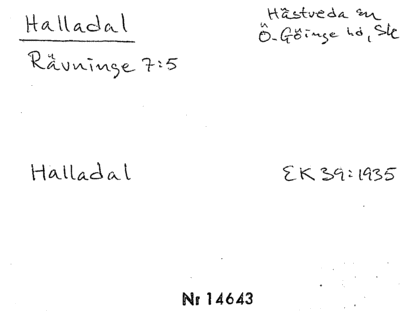 Halladal
Hästveda sn
Ö. Göinge hd, Sk
Rävninge 7:5
Halladal
EK 39:1935
Nr 14643